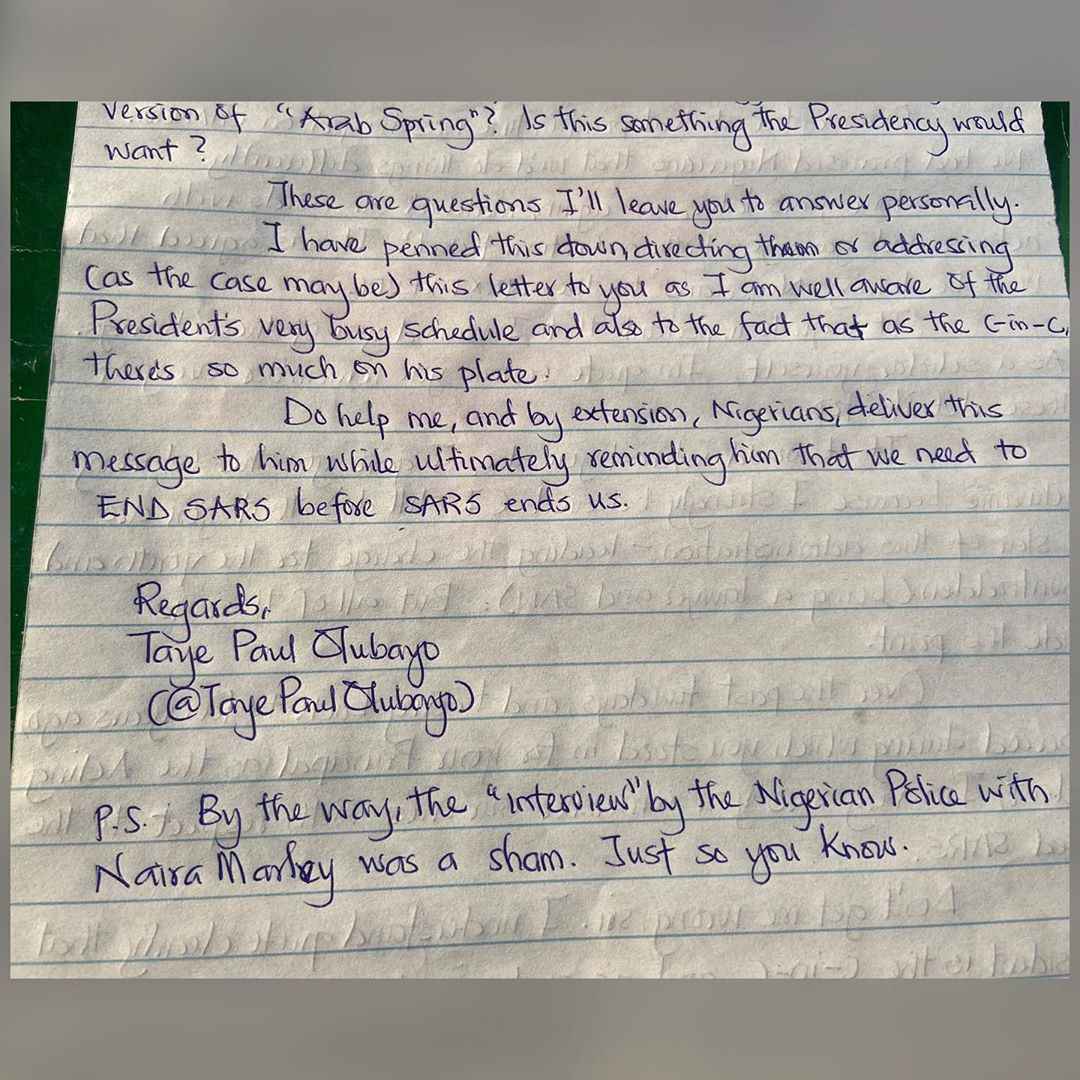 version of "Arab Spring"? Is this something the Presidency would
want?
These are questions I'll leave you to answer personally.
I have penned this down, directing them or addressing
(as the case may be) this letter to you as I am well aware of the
President's very busy schedule and also to the fact that as the C-in-C,
there's so much on his plate.
Do help me, and by extension, Nigerians, deliver this
message to him while ultimately reminding him that we need to
END SARS before SARS ends us.
Regards,
Taye Paul Olubayo
(@TayePaulOlubayo)
P.S. : By the way, the "interview" by the Nigerian Police with
Naira Marley was a sham. Just so you know.